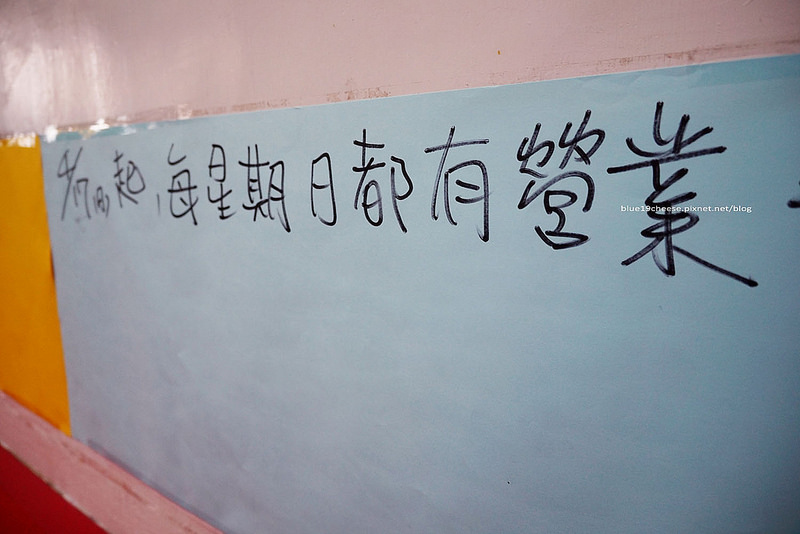 起，每星期日都有營業
blue19cheese.pixnet.net/blog